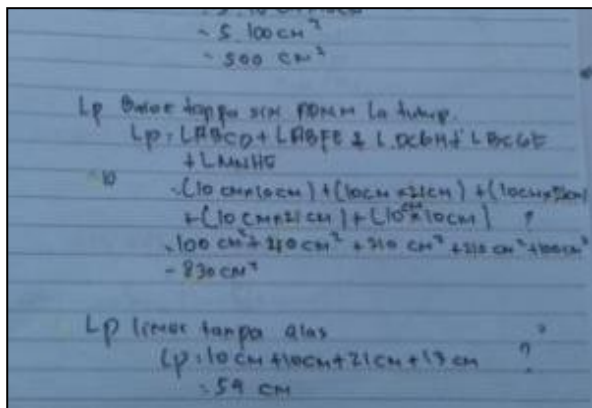 = 5 . 100 cm²
= 500 cm²
Lp Balok tanpa sisi ADNM La tutup.
Lp = LABCD + LABFE + L DCGH + L BCGF
+ LMNHG
= (10 cm × 10 cm) + (10 cm × 21 cm) + (10 cm × 21 cm)
+ (10 cm × 21 cm) + (10 cm × 10 cm) ?
= 100 cm² + 210 cm² + 210 cm² + 210 cm² + 100 cm²
= 830 cm²
Lp limas tanpa alas
Lp = 10 cm + 10 cm + 21 cm + 13 cm ?
= 54 cm